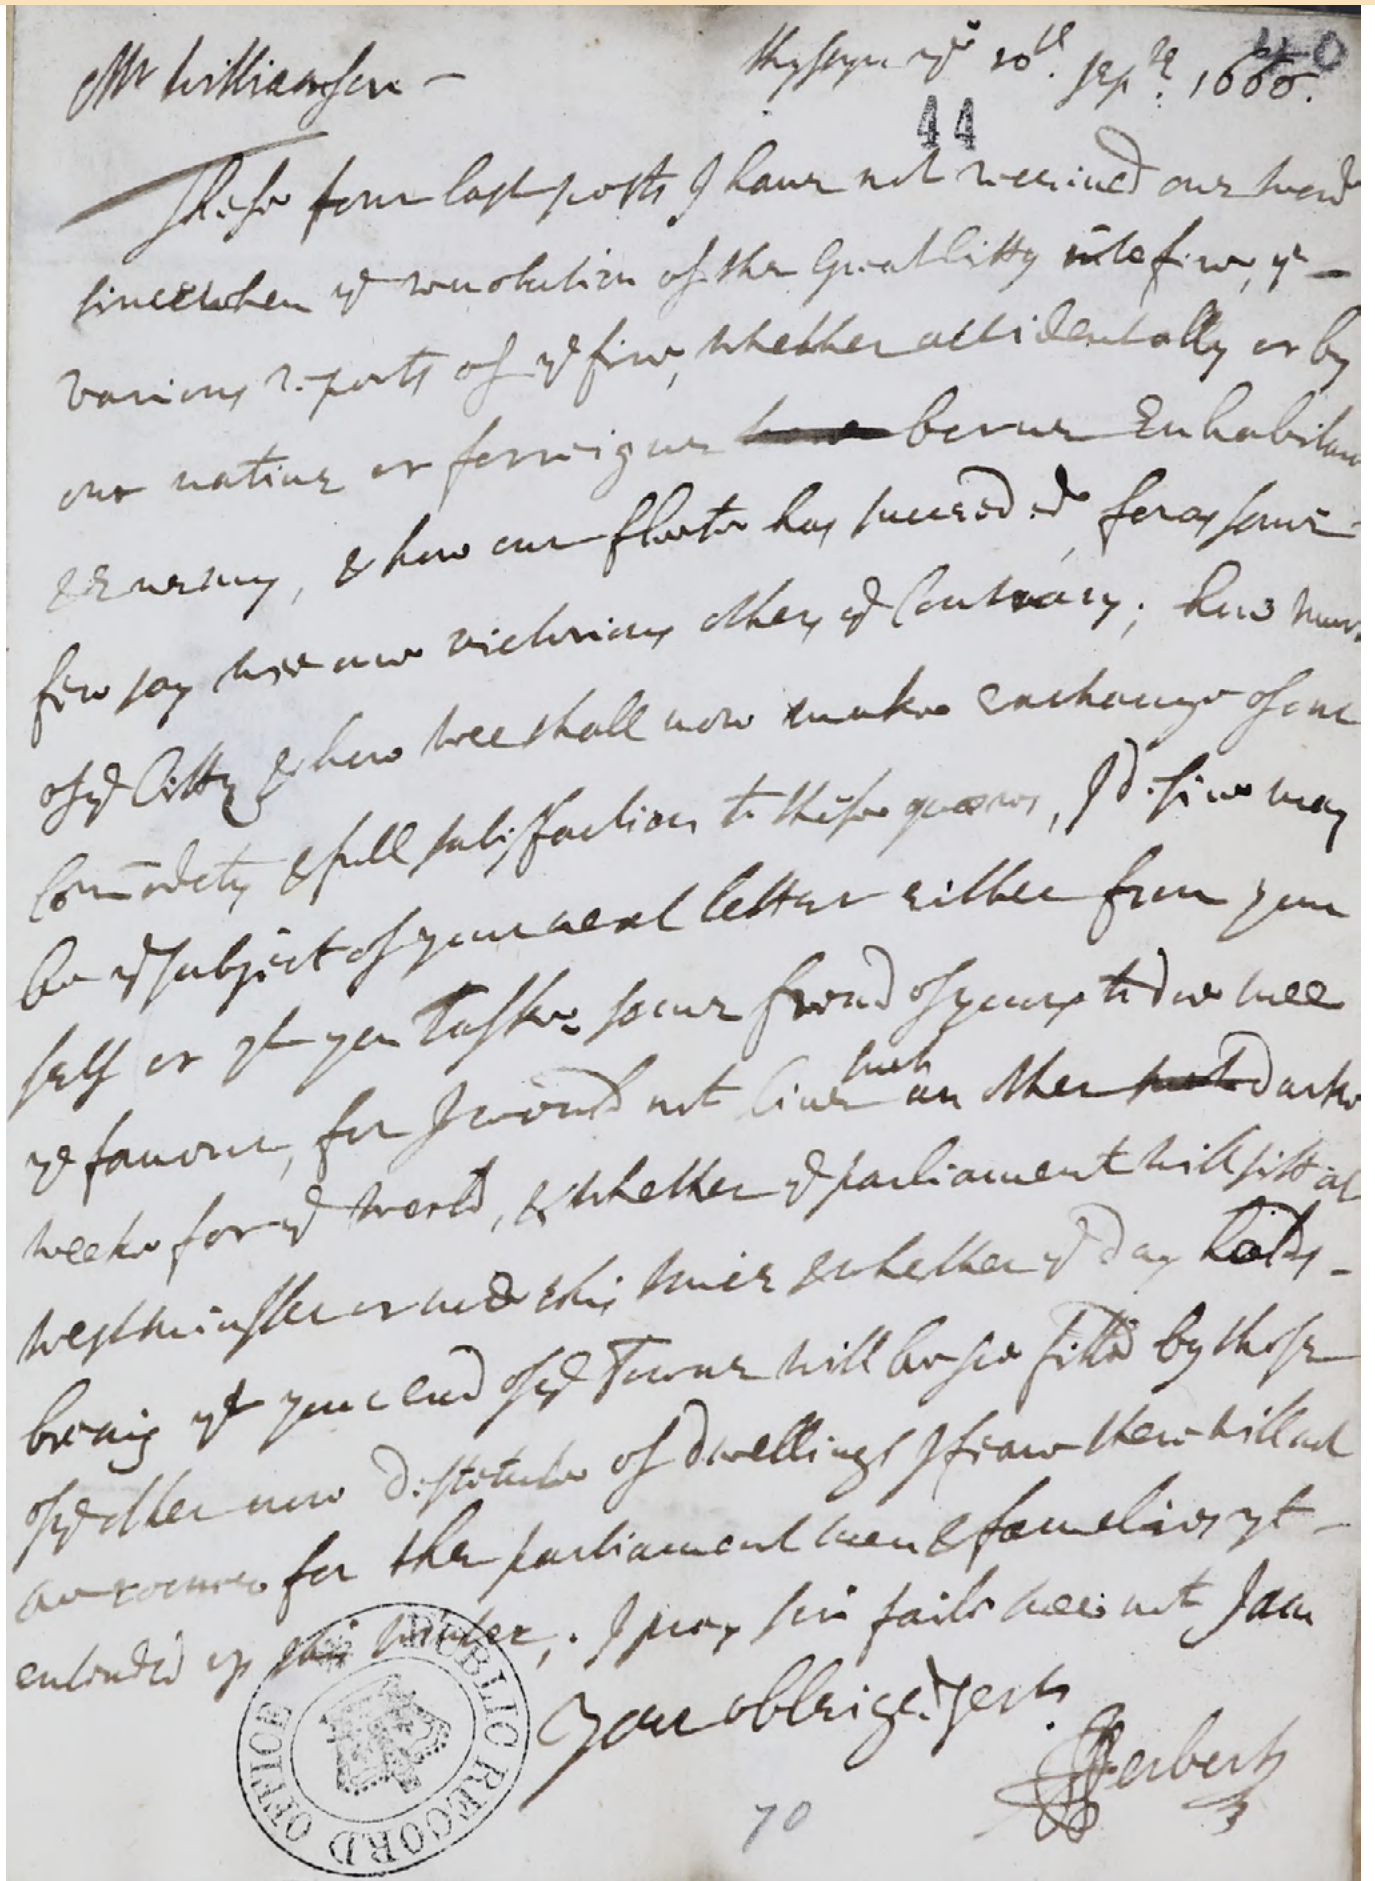 Mr Williamson -
ye 10th. Sepbr. 1666.
40
44
These four last posts I haue not receiued one word
since when ye reuolution of the Great Citty into fire, ye -
various reports of ye fire, whether accidentally or by
our natiue or forreigne borne Enhabitans
& Enemy, & how our fleete has succeeded, for as some
few say wee are victorious others ye Contrary; how much
of ye Citty & how wee shall now make exchange of our
Com̄odety & full satisfaction to these quæres, I desire may
be ye subject of your next letter either from your
self or yt you Taske some frend of yours to doe mee
ye favour, for I would not liue such an other darke
weeke for ye world, & whether ye parliament will sitt at
westminster or noe this time & whether ye day holds -
being yt your end of ye Towne will be soe filld by those
of ye other now destetute of dwellings I feare there will not
be roome for the parliament men & famelies yt -
entended up this winter; I pray sir faile mee not I am
Your obleiged sert
Herbert
70
PUBLIC RECORD OFFICE